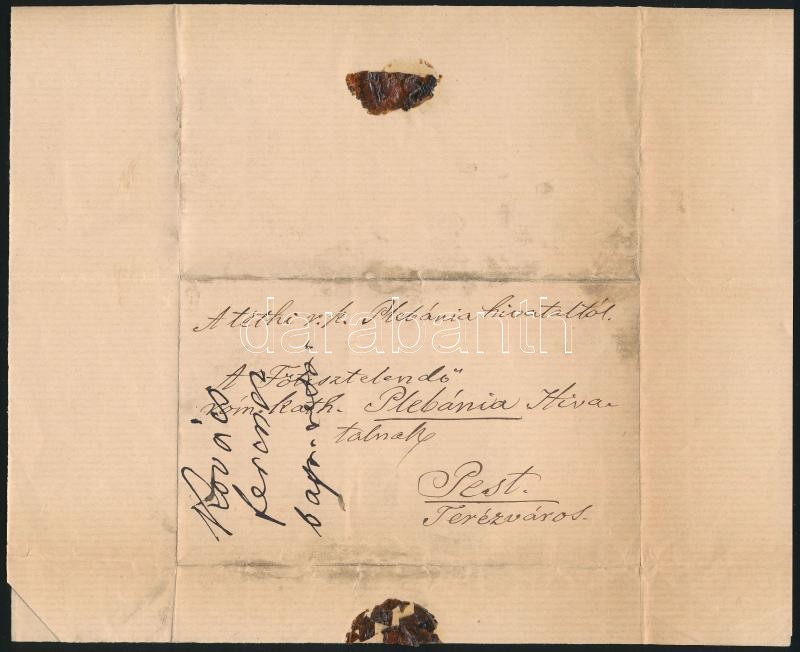 A téthi r. k. Plebánia hivataltól.
A Főtisztelendő
róm. kath. Plebánia Hiva-
talnak
Pest.
Terézváros.
Kovács
ferencz
darabanth